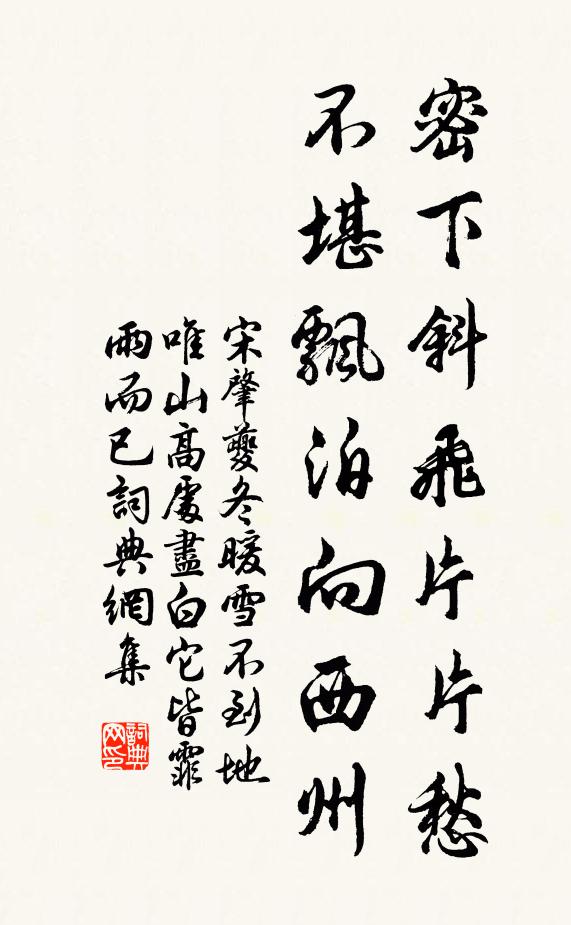 密下斜飛片片愁
不堪飄泊向西州
宋肇夔冬暖雪不到地
唯山高處盡白它皆霏
雨而已詞典網集
詞典网印